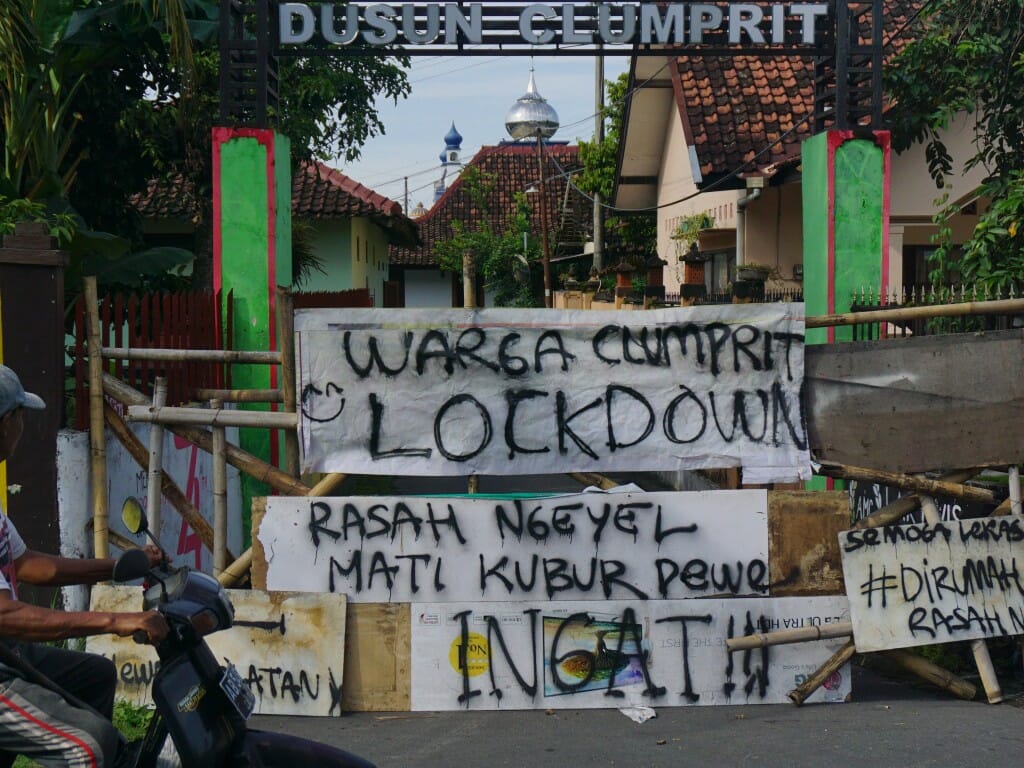 DUSUN CLUMPRIT
WARGA CLUMPRIT
LOCKDOWN
RASAH NGEYEL
MATI KUBUR DEWE
INGAT!!!
SEMOGA LEKAS
#DIRUMAH
RASAH N
ATAN
ULTRA H
THE FIRST